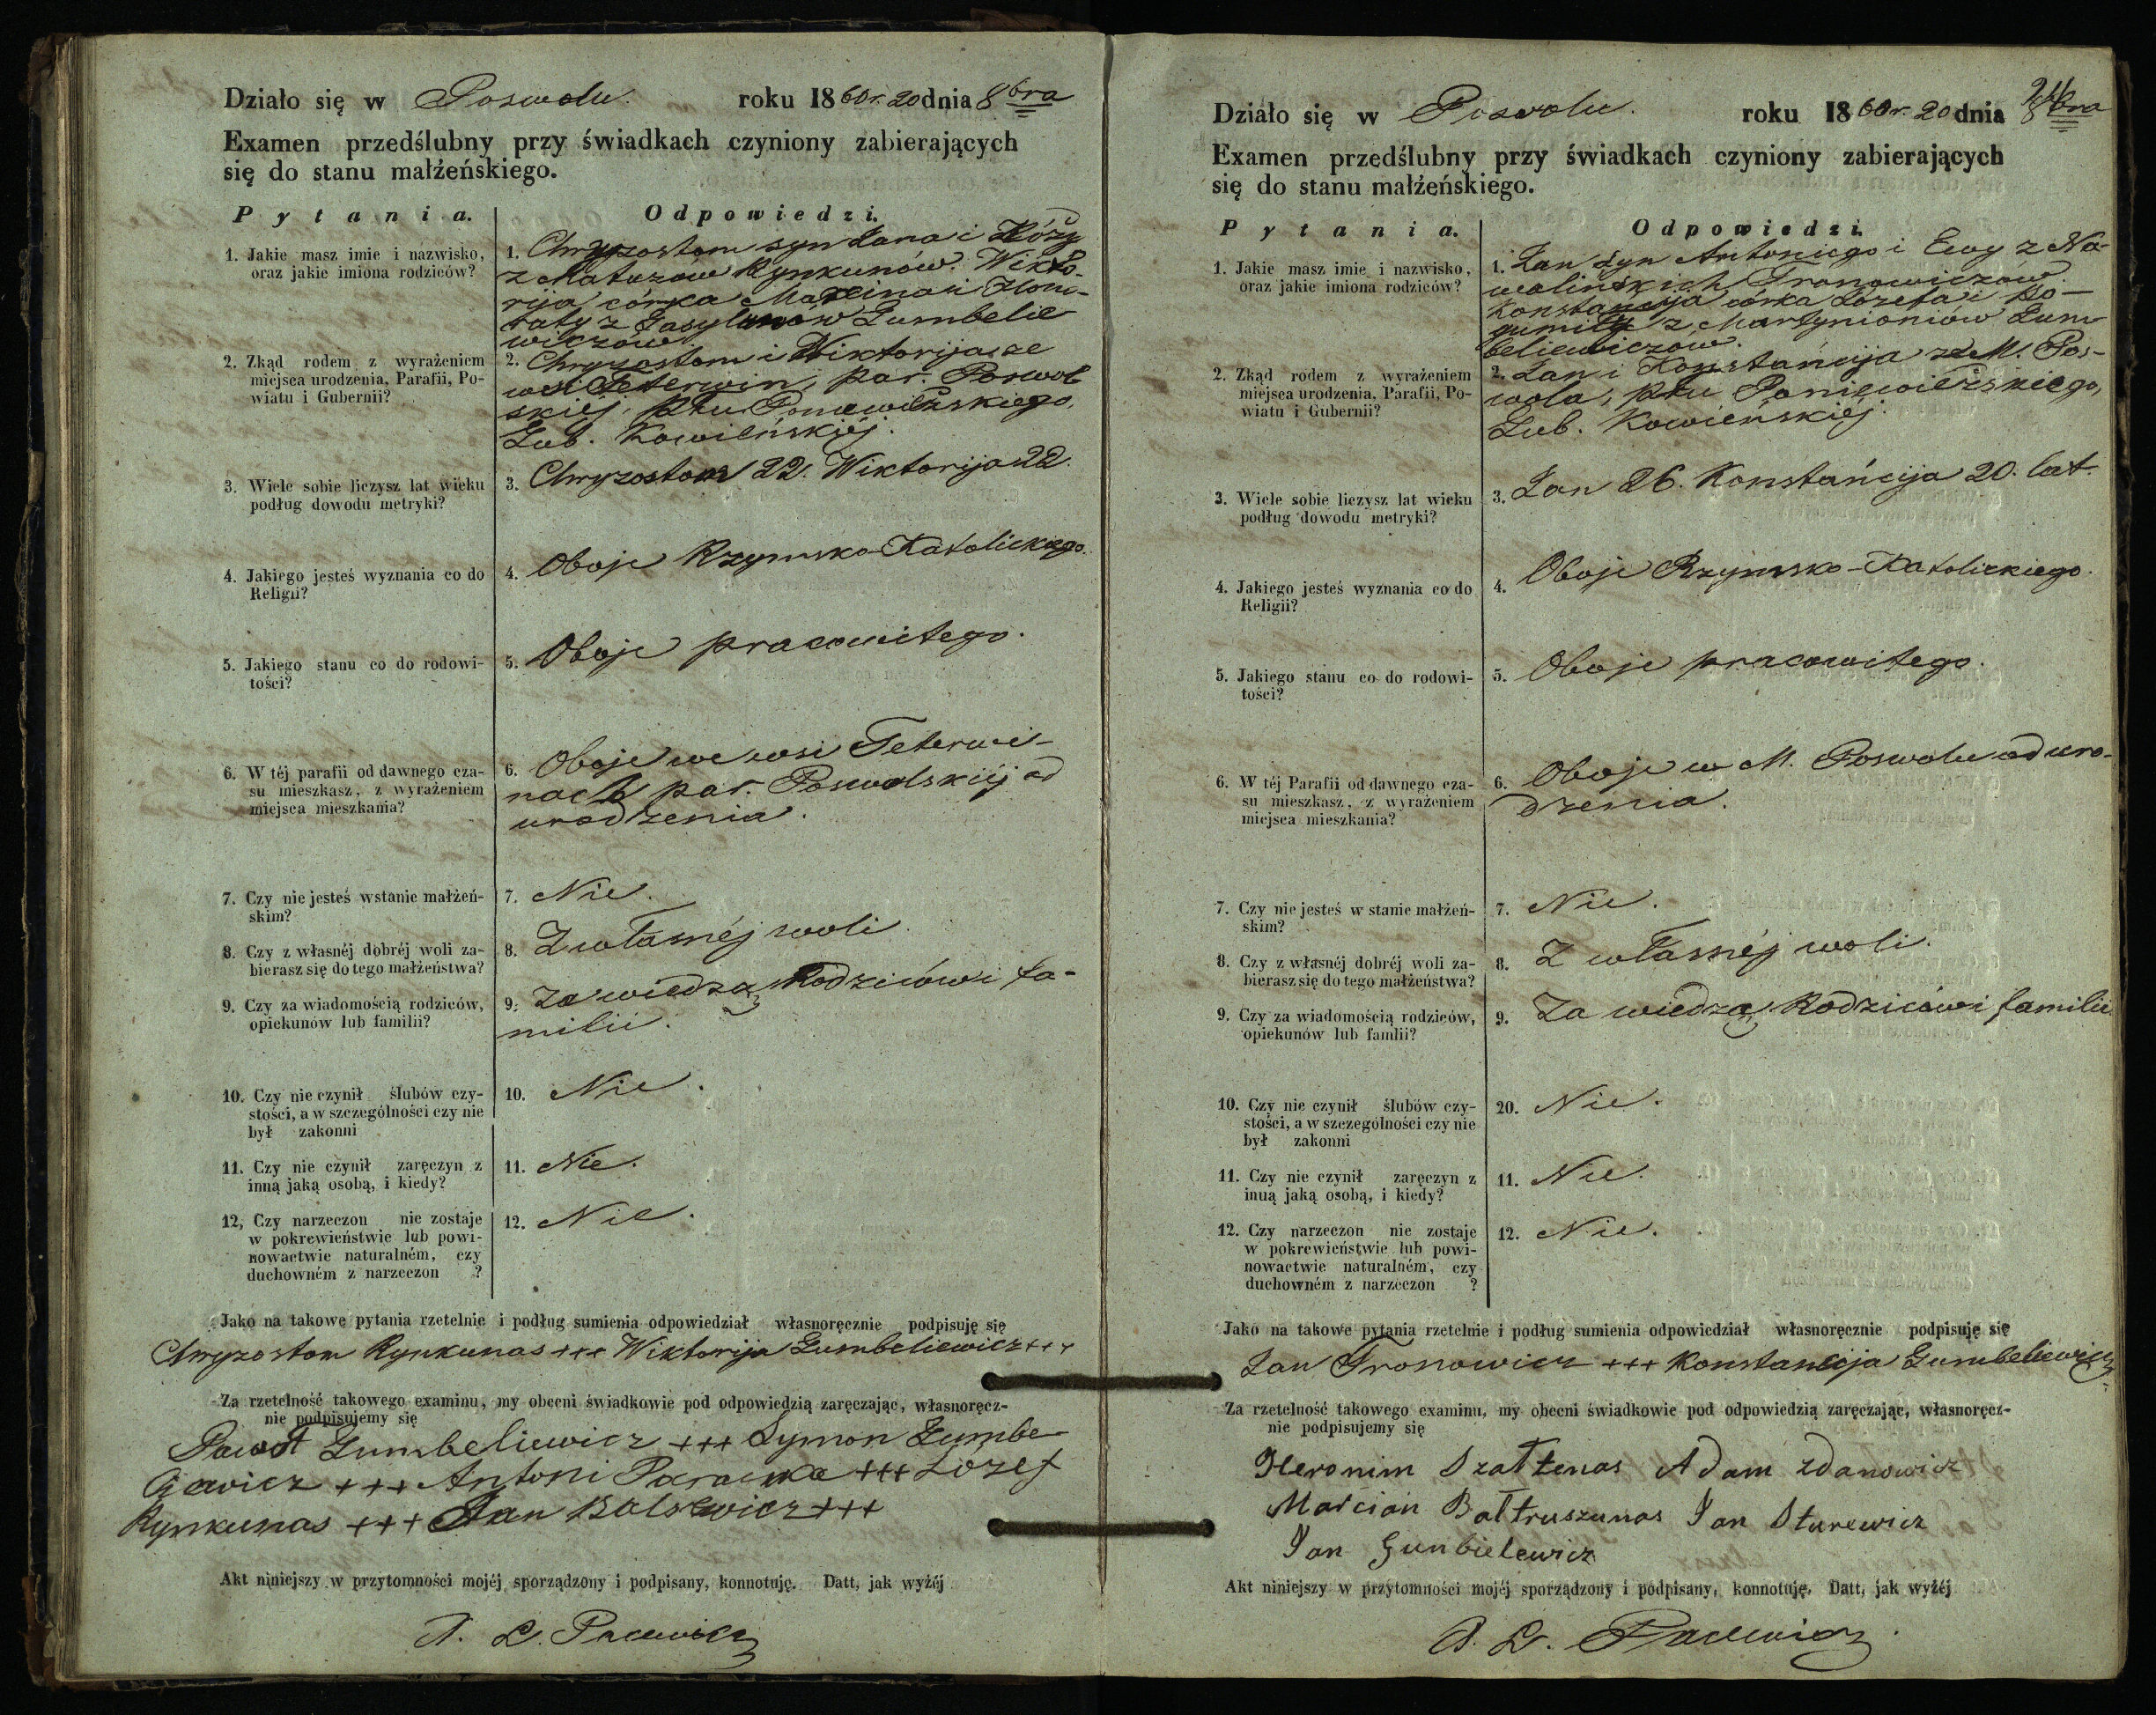 Działo się w Poswolu. roku 1860 r. 20 dnia 8bra
Examen przedślubny przy świadkach czyniony zabierających
się do stanu małżeńskiego.
Pytania. Odpowiedzi.
1. Jakie masz imie i nazwisko,
oraz jakie imiona rodziców?
1. Chryzostom syn Jana i Róży
z Matuzów Rynkunów. Wikto-
rija córka Marcina i Hono-
raty z Gumbelie-
wiczów.
2. Zkąd rodem z wyrażeniem
miejsca urodzenia, Parafii, Po-
wiatu i Gubernii?
2. Chryzostom i Wiktorija ze
wsi Teterwin, par. Poswol-
skiej, Ptu Poniewiéżskiego,
Gub. Kowieńskiéj.
3. Wiele sobie liczysz lat wieku
podług dowodu metryki?
3. Chryzostom 22. Wiktorija 22.
4. Jakiego jesteś wyznania co do
Religii?
4. Oboje Rzymsko-Katolickiego.
5. Jakiego stanu co do rodowi-
tości?
5. Oboje pracowitego.
6. W téj parafii od dawnego cza-
su mieszkasz, z wyrażeniem
miejsca mieszkania?
6. Oboje we wsi Teterwi-
nach par. Poswolskiéj od
urodzenia.
7. Czy nie jesteś wstanie małżeń-
skim?
7. Nie.
8. Czy z własnéj dobréj woli za-
bierasz się do tego małżeństwa?
8. Z własnéj woli
9. Czy za wiadomością rodziców,
opiekunów lub familii?
9. Za wiedzą Rodziców i fa-
milii.
10. Czy nie czynił ślubów czy-
stości, a w szczególności czy nie
był zakonni
10. Nie.
11. Czy nie czynił zaręczyn z
inną jaką osobą, i kiedy?
11. Nie.
12, Czy narzeczon nie zostaje
w pokrewieństwie lub powi-
nowactwie naturalném, czy
duchowném z narzeczon ?
12. Nie.
Jako na takowe pytania rzetelnie i podług sumienia odpowiedział własnoręcznie podpisuję się
Chryzostom Rynkunas +++ Wiktorija Gumbeliewicz +++
Za rzetelność takowego examinu, my obecni świadkowie pod odpowiedzią zaręczając, własnoręcz-
nie podpisujemy się
Paweł Gumbeliewicz +++ Symon Gumbe-
liewicz +++ Antoni +++ Józef
Rynkunas +++ Jan Balsewicz +++
Akt niniejszy w przytomności mojéj sporządzony i podpisany, konnotuję. Datt, jak wyżéj
X. L. Pacewicz
Działo się w Poswolu. roku 1860 r. 20 dnia 8bra
Examen przedślubny przy świadkach czyniony zabierających
się do stanu małżeńskiego.
Pytania. Odpowiedzi.
1. Jakie masz imie i nazwisko,
oraz jakie imiona rodziców?
1. Jan syn Antoniego i Ewy z Na-
walińskich Tronowiczów.
Konstancija córka Józefa i Bo-
gumiły z Martynioniów Gum-
beliewiczow.
2. Zkąd rodem z wyrażeniem
miejsca urodzenia, Parafii, Po-
wiatu i Gubernii?
2. Jan i Konstańcija z M. Pos-
wola, Ptu Poniewieżskiego,
Gub. Kowieńskiej.
3. Wiele sobie liczysz lat wieku
podług dowodu metryki?
3. Jan 26. Konstańcija 20. lat.
4. Jakiego jesteś wyznania co do
Religii?
4. Oboje Rzymsko-Katolickiego.
5. Jakiego stanu co do rodowi-
tości?
5. Oboje pracowitego.
6. W téj Parafii od dawnego cza-
su mieszkasz, z wyrażeniem
miejsca mieszkania?
6. Oboje w M. Poswolu od uro-
dzenia.
7. Czy nie jesteś w stanie małżeń-
skim?
7. Nie.
8. Czy z własnéj dobréj woli za-
bierasz się do tego małżeństwa?
8. Z własnéj woli.
9. Czy za wiadomością rodziców,
opiekunów lub familii?
9. Za wiedzą Rodziców i familii
10. Czy nie czynił ślubów czy-
stości, a w szczególności czy nie
był zakonni
20. Nie.
11. Czy nie czynił zaręczyn z
inuą jaką osobą, i kiedy?
11. Nie.
12. Czy narzeczon nie zostaje
w pokrewieństwie lub powi-
nowactwie naturalném, czy
duchowném z narzeczon ?
12. Nie.
Jako na takowe pytania rzetelnie i podług sumienia odpowiedział własnoręcznie podpisuję się
Jan Tronowicz +++ Konstancija Gumbeliewicz
Za rzetelność takowego examinu, my obecni świadkowie pod odpowiedzią zaręczając, własnoręcz-
nie podpisujemy się
Heronim Szałtenas Adam Zdanowicz
Marcian Bałtruszunas Jan Sturewicz
Jan Gunbielewicz
Akt niniejszy w przytomności mojéj sporządzony i podpisany, konnotuję. Datt, jak wyżéj
X. L. Pacewicz